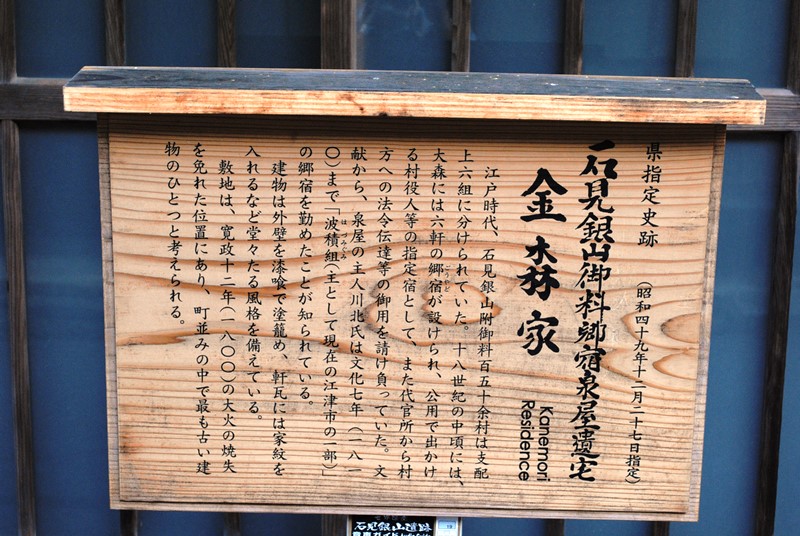 県指定史跡
(昭和四十九年十二月二十七日指定)
石見銀山御料郷宿泉屋遺宅
金森家
Kanemori
Residence
江戸時代、石見銀山附御料百五十余村は支配
上六組に分けられていた。十八世紀の中頃には、
大森には六軒の郷宿が設けられ、公用で出かけ
る村役人等の指定宿として、また代官所から村
方への法令伝達等の御用を請け負っていた。文
献から、泉屋の主人川北氏は文化七年(一八一
〇)まで「波積組(主として現在の江津市の一部)」
はづみぐみ
の郷宿を勤めたことが知られている。
建物は外壁を漆喰で塗籠め、軒瓦には家紋を
入れるなど堂々たる風格を備えている。
敷地は、寛政十二年(一八〇〇)の大火の焼失
を免れた位置にあり、町並みの中で最も古い建
物のひとつと考えられる。
石見銀山遺跡